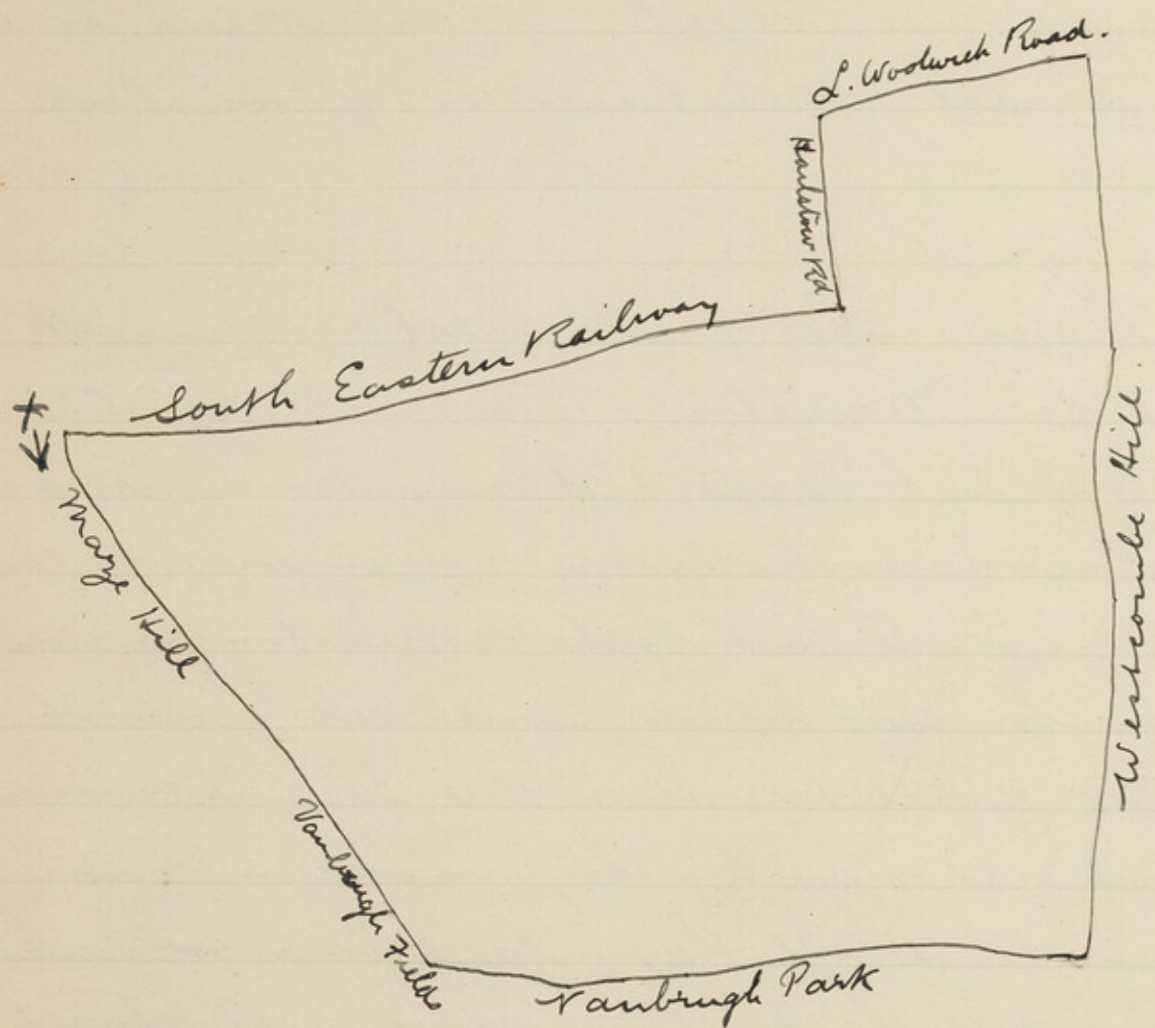 L. Woolwich Road.
Hailstow Rd
South Eastern Railway
Maze Hill
Westcombe Hill.
Vanbrugh Fields
Vanbrugh Park